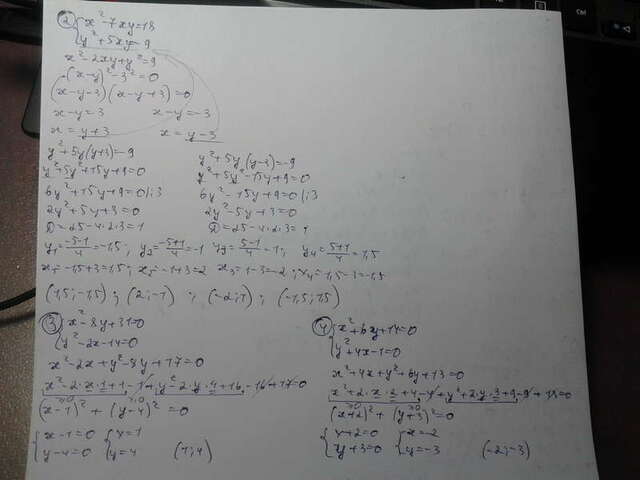 ② { x² - 7xy = 18
{ y² + 5xy = -9
x² - 2xy + y² = 9
(x-y)² - 3² = 0
(x-y-3)(x-y+3) = 0
x-y = 3    x-y = -3
x = y+3    x = y-3
y² + 5y(y+3) = -9
y² + 5y² + 15y + 9 = 0
6y² + 15y + 9 = 0 |:3
2y² + 5y + 3 = 0
D = 25 - 4·2·3 = 1
y² + 5y(y-3) = -9
y² + 5y² - 15y + 9 = 0
6y² - 15y + 9 = 0 |:3
2y² - 5y + 3 = 0
D = 25 - 4·2·3 = 1
y₁ = (-5-1)/4 = -1,5; y₂ = (-5+1)/4 = -1  y₃ = (5-1)/4 = 1; y₄ = (5+1)/4 = 1,5
x₁ = -1,5+3 = 1,5; x₂ = -1+3 = 2  x₃ = 1-3 = -2; x₄ = 1,5-3 = -1,5
(1,5; -1,5); (2; -1); (-2; 1); (-1,5; 1,5)
③ { x² - 8y + 31 = 0
{ y² - 2x - 14 = 0
x² - 2x + y² - 8y + 17 = 0
x² - 2·x·1 + 1 - 1 + y² - 2·y·4 + 16 - 16 + 17 = 0
(x-1)² + (y-4)² = 0
≥0 ≥0
{ x-1 = 0  { x = 1
{ y-4 = 0  { y = 4    (1; 4)
④ { x² + 6y + 14 = 0
{ y² + 4x - 1 = 0
x² + 4x + y² + 6y + 13 = 0
x² + 2·x·2 + 4 - 4 + y² + 2·y·3 + 9 - 9 + 13 = 0
(x+2)² + (y+3)² = 0
≥0 ≥0
{ x+2 = 0  { x = -2
{ y+3 = 0  { y = -3    (-2; -3)